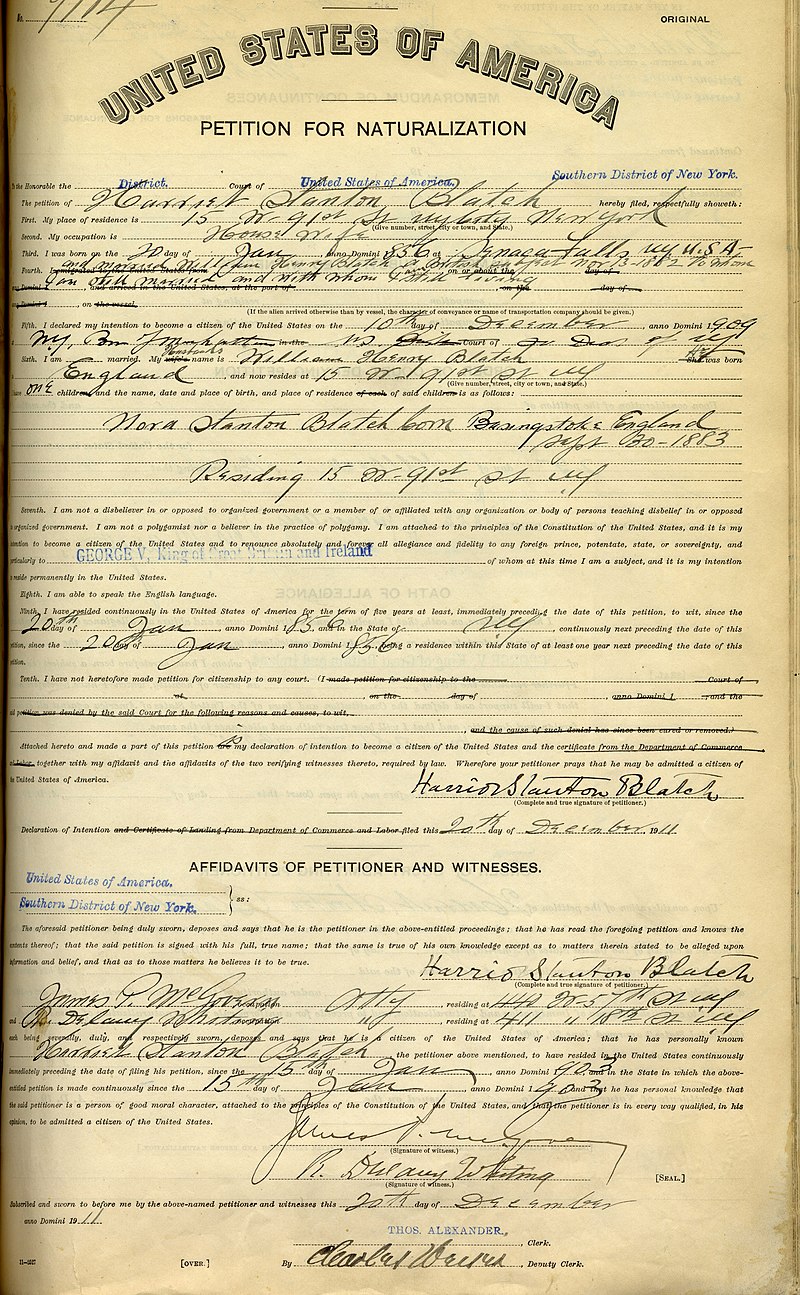 No.
ORIGINAL
UNITED STATES OF AMERICA
PETITION FOR NATURALIZATION
the Honorable the District. Court of United States of America. Southern District of New York.
The petition of Harriet Stanton Blatch hereby filed, respectfully showeth:
First. My place of residence is 15 W. 91st St NY City New York
(Give number, street, city or town, and State.)
Second. My occupation is House Wife
Third. I was born on the 20 day of Jan anno Domini 1856 at Senaca Falls NY U.S.A.
Fourth. and married Henry Blatch Nov 1882 to whom
on or about the day of
I am still married and with whom I still
and arrived in the United States, at the port of on the day of
on the vessel.
(If the alien arrived otherwise than by vessel, the character of conveyance or name of transportation company should be given.)
Fifth. I declared my intention to become a citizen of the United States on the 10th day of December, anno Domini 1909
NY, in the Court of So Dist of NY
Sixth. I am married. My wife's husbands name is William Henry Blatch She was born
England, and now resides at 15 W. 91st St NY
(Give number, street, city or town, and State.)
have one children, and the name, date and place of birth, and place of residence of each of said children is as follows:
Nora Stanton Blatch born Basingstoke England
Sept 30-1883
Residing 15 W. 91st St NY
Seventh. I am not a disbeliever in or opposed to organized government or a member of or affiliated with any organization or body of persons teaching disbelief in or opposed
organized government. I am not a polygamist nor a believer in the practice of polygamy. I am attached to the principles of the Constitution of the United States, and it is my
intention to become a citizen of the United States and to renounce absolutely and forever all allegiance and fidelity to any foreign prince, potentate, state, or sovereignty, and
particularly to GEORGE V, King of Great Britain and Ireland of whom at this time I am a subject, and it is my intention
reside permanently in the United States.
Eighth. I am able to speak the English language.
Ninth. I have resided continuously in the United States of America for the term of five years at least, immediately preceding the date of this petition, to wit, since the
20th day of Jan, anno Domini 1856 and in the State of NY, continuously next preceding the date of this
petition, since the 20th day of Jan, anno Domini 1856, being a residence within this State of at least one year next preceding the date of this
petition.
Tenth. I have not heretofore made petition for citizenship to any court. (I made petition for citizenship to the Court of
at, on the day of, anno Domini 1, and the
petition was denied by the said Court for the following reasons and causes, to wit,
, and the cause of such denial has since been cured or removed.)
Attached hereto and made a part of this petition are is my declaration of intention to become a citizen of the United States and the certificate from the Department of Commerce
Labor together with my affidavit and the affidavits of the two verifying witnesses thereto, required by law. Wherefore your petitioner prays that he may be admitted a citizen of
United States of America.
Harriot Stanton Blatch
(Complete and true signature of petitioner.)
Declaration of Intention and Certificate of Landing from Department of Commerce and Labor filed this 20th day of December 1911
AFFIDAVITS OF PETITIONER AND WITNESSES.
United States of America.
Southern District of New York. } ss:
The aforesaid petitioner being duly sworn, deposes and says that he is the petitioner in the above-entitled proceedings; that he has read the foregoing petition and knows the
contents thereof; that the said petition is signed with his full, true name; that the same is true of his own knowledge except as to matters therein stated to be alleged upon
information and belief, and that as to those matters he believes it to be true.
Harriot Stanton Blatch
(Complete and true signature of petitioner.)
James P. McGovern, occupation Atty, residing at 449 W 57th St NY
and R. Delany occupation ", residing at 411 " 18th St NY
each being severally, duly, and respectively sworn, deposes and says that he is a citizen of the United States of America; that he has personally known
Harriet Stanton Blatch, the petitioner above mentioned, to have resided in the United States continuously
immediately preceding the date of filing his petition, since the 15th day of Jan, anno Domini 1903 and in the State in which the above-
entitled petition is made continuously since the 15th day of Jan, anno Domini 1903 and that he has personal knowledge that
the said petitioner is a person of good moral character, attached to the principles of the Constitution of the United States, and that the petitioner is in every way qualified, in his
opinion, to be admitted a citizen of the United States.
James P. McGovern
(Signature of witness.)
R. Delany Whiting
(Signature of witness.)
[SEAL.]
Subscribed and sworn to before me by the above-named petitioner and witnesses this 20th day of December
anno Domini 1911.
THOS. ALEXANDER., Clerk.
[OVER.]
By Charles, Deputy Clerk.